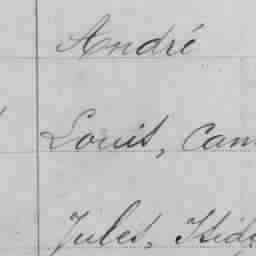 André
Louis, Cam
Jules, Isid